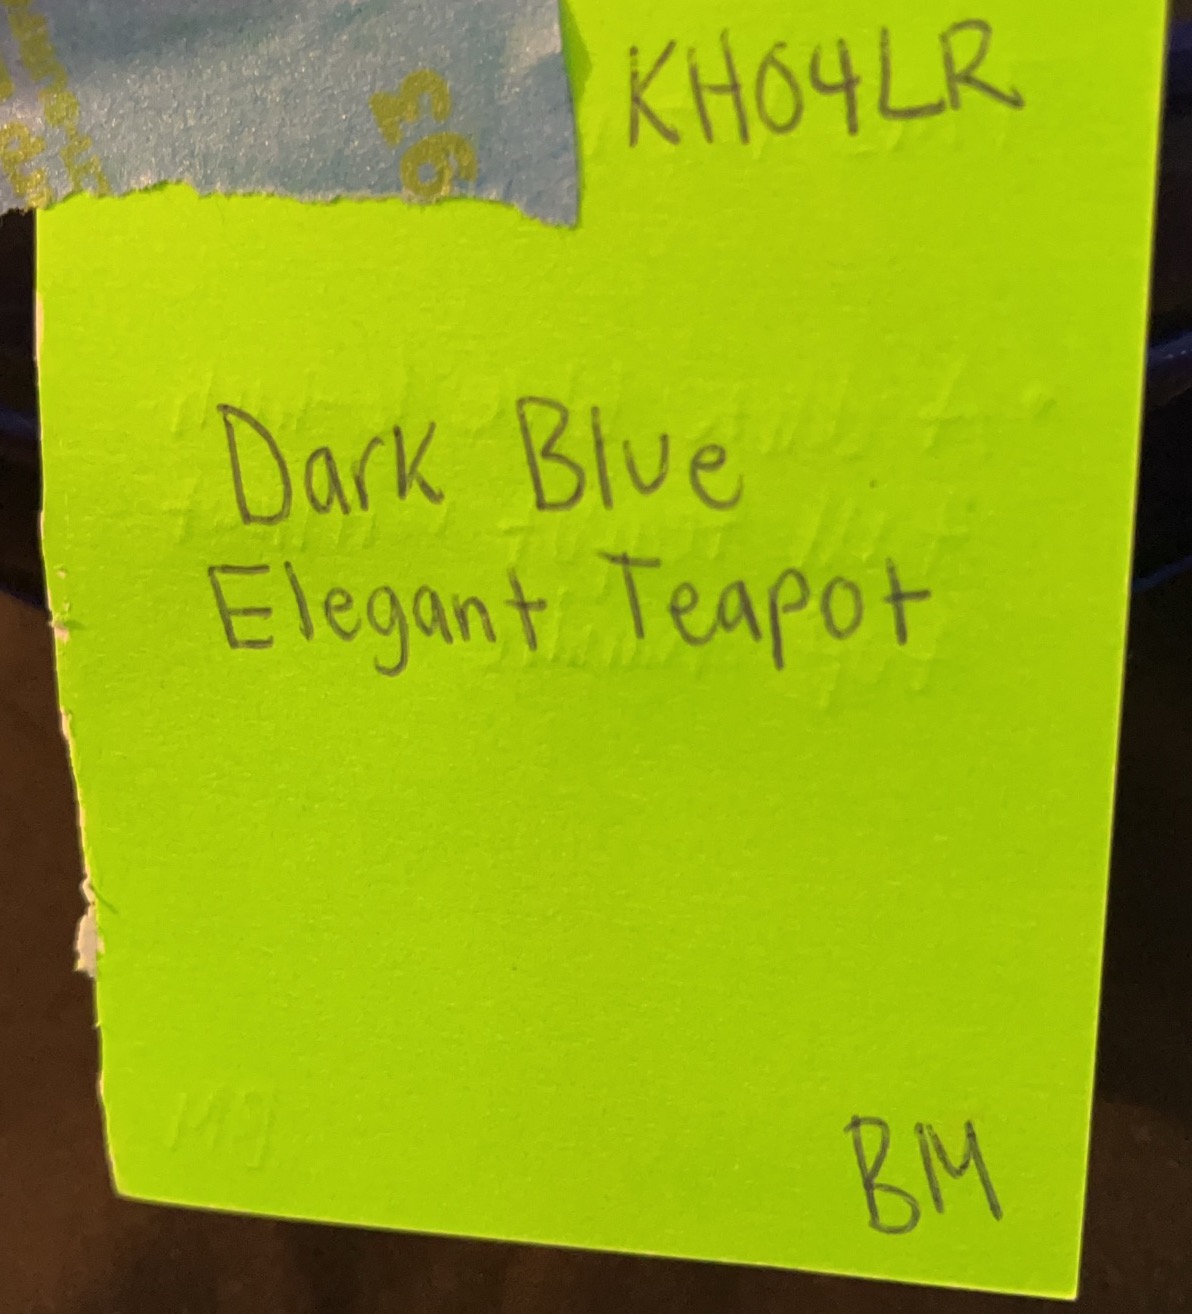 KH04LR
Dark Blue
Elegant Teapot
BM